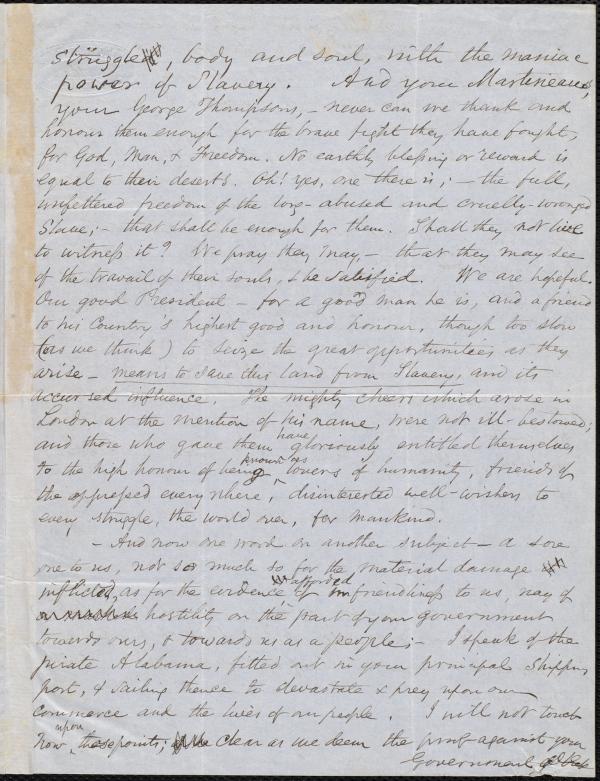 struggle, body and soul, with the maniac
power of Slavery. And your Martineaus,
your George Thompsons, - never can we thank and
honour them enough for the brave fight they have fought,
for God, Man, & Freedom. No earthly blessing or reward is
equal to their deserts. Oh! yes, one there is; - the full,
unfettered freedom of the long-abused and cruelly-wronged
Slave; - that shall be enough for them. Shall they not live
to witness it? We pray they may, - that they may see
of the travail of their souls, & be satisfied. We are hopeful.
Our good President - for a good man he is, and a friend
to his Country's highest good and honour, though too slow
(as we think) to seize the great opportunities as they
arise - means to save this land from Slavery, and its
accursed influence. The mighty cheers which arose in
London at the mention of his name, were not ill-bestowed;
and those who gave them have gloriously entitled themselves
to the high honour of being known as lovers of humanity, friends of
the oppressed everywhere, disinterested well-wishers to
every struggle, the world over, for mankind.
- And now one word on another subject - a sore
one to us, not so much so for the material damage
inflicted, as for the evidence afforded of unfriendliness to us, nay of
hostility on the part of your government
towards ours, & towards us as a people; - I speak of the
pirate Alabama, fitted out in your principal Shipping
port, & sailing thence to devastate & prey upon our
commerce and the lives of our people. I will not touch
now, upon these points; clear as we deem the proof against your
Government